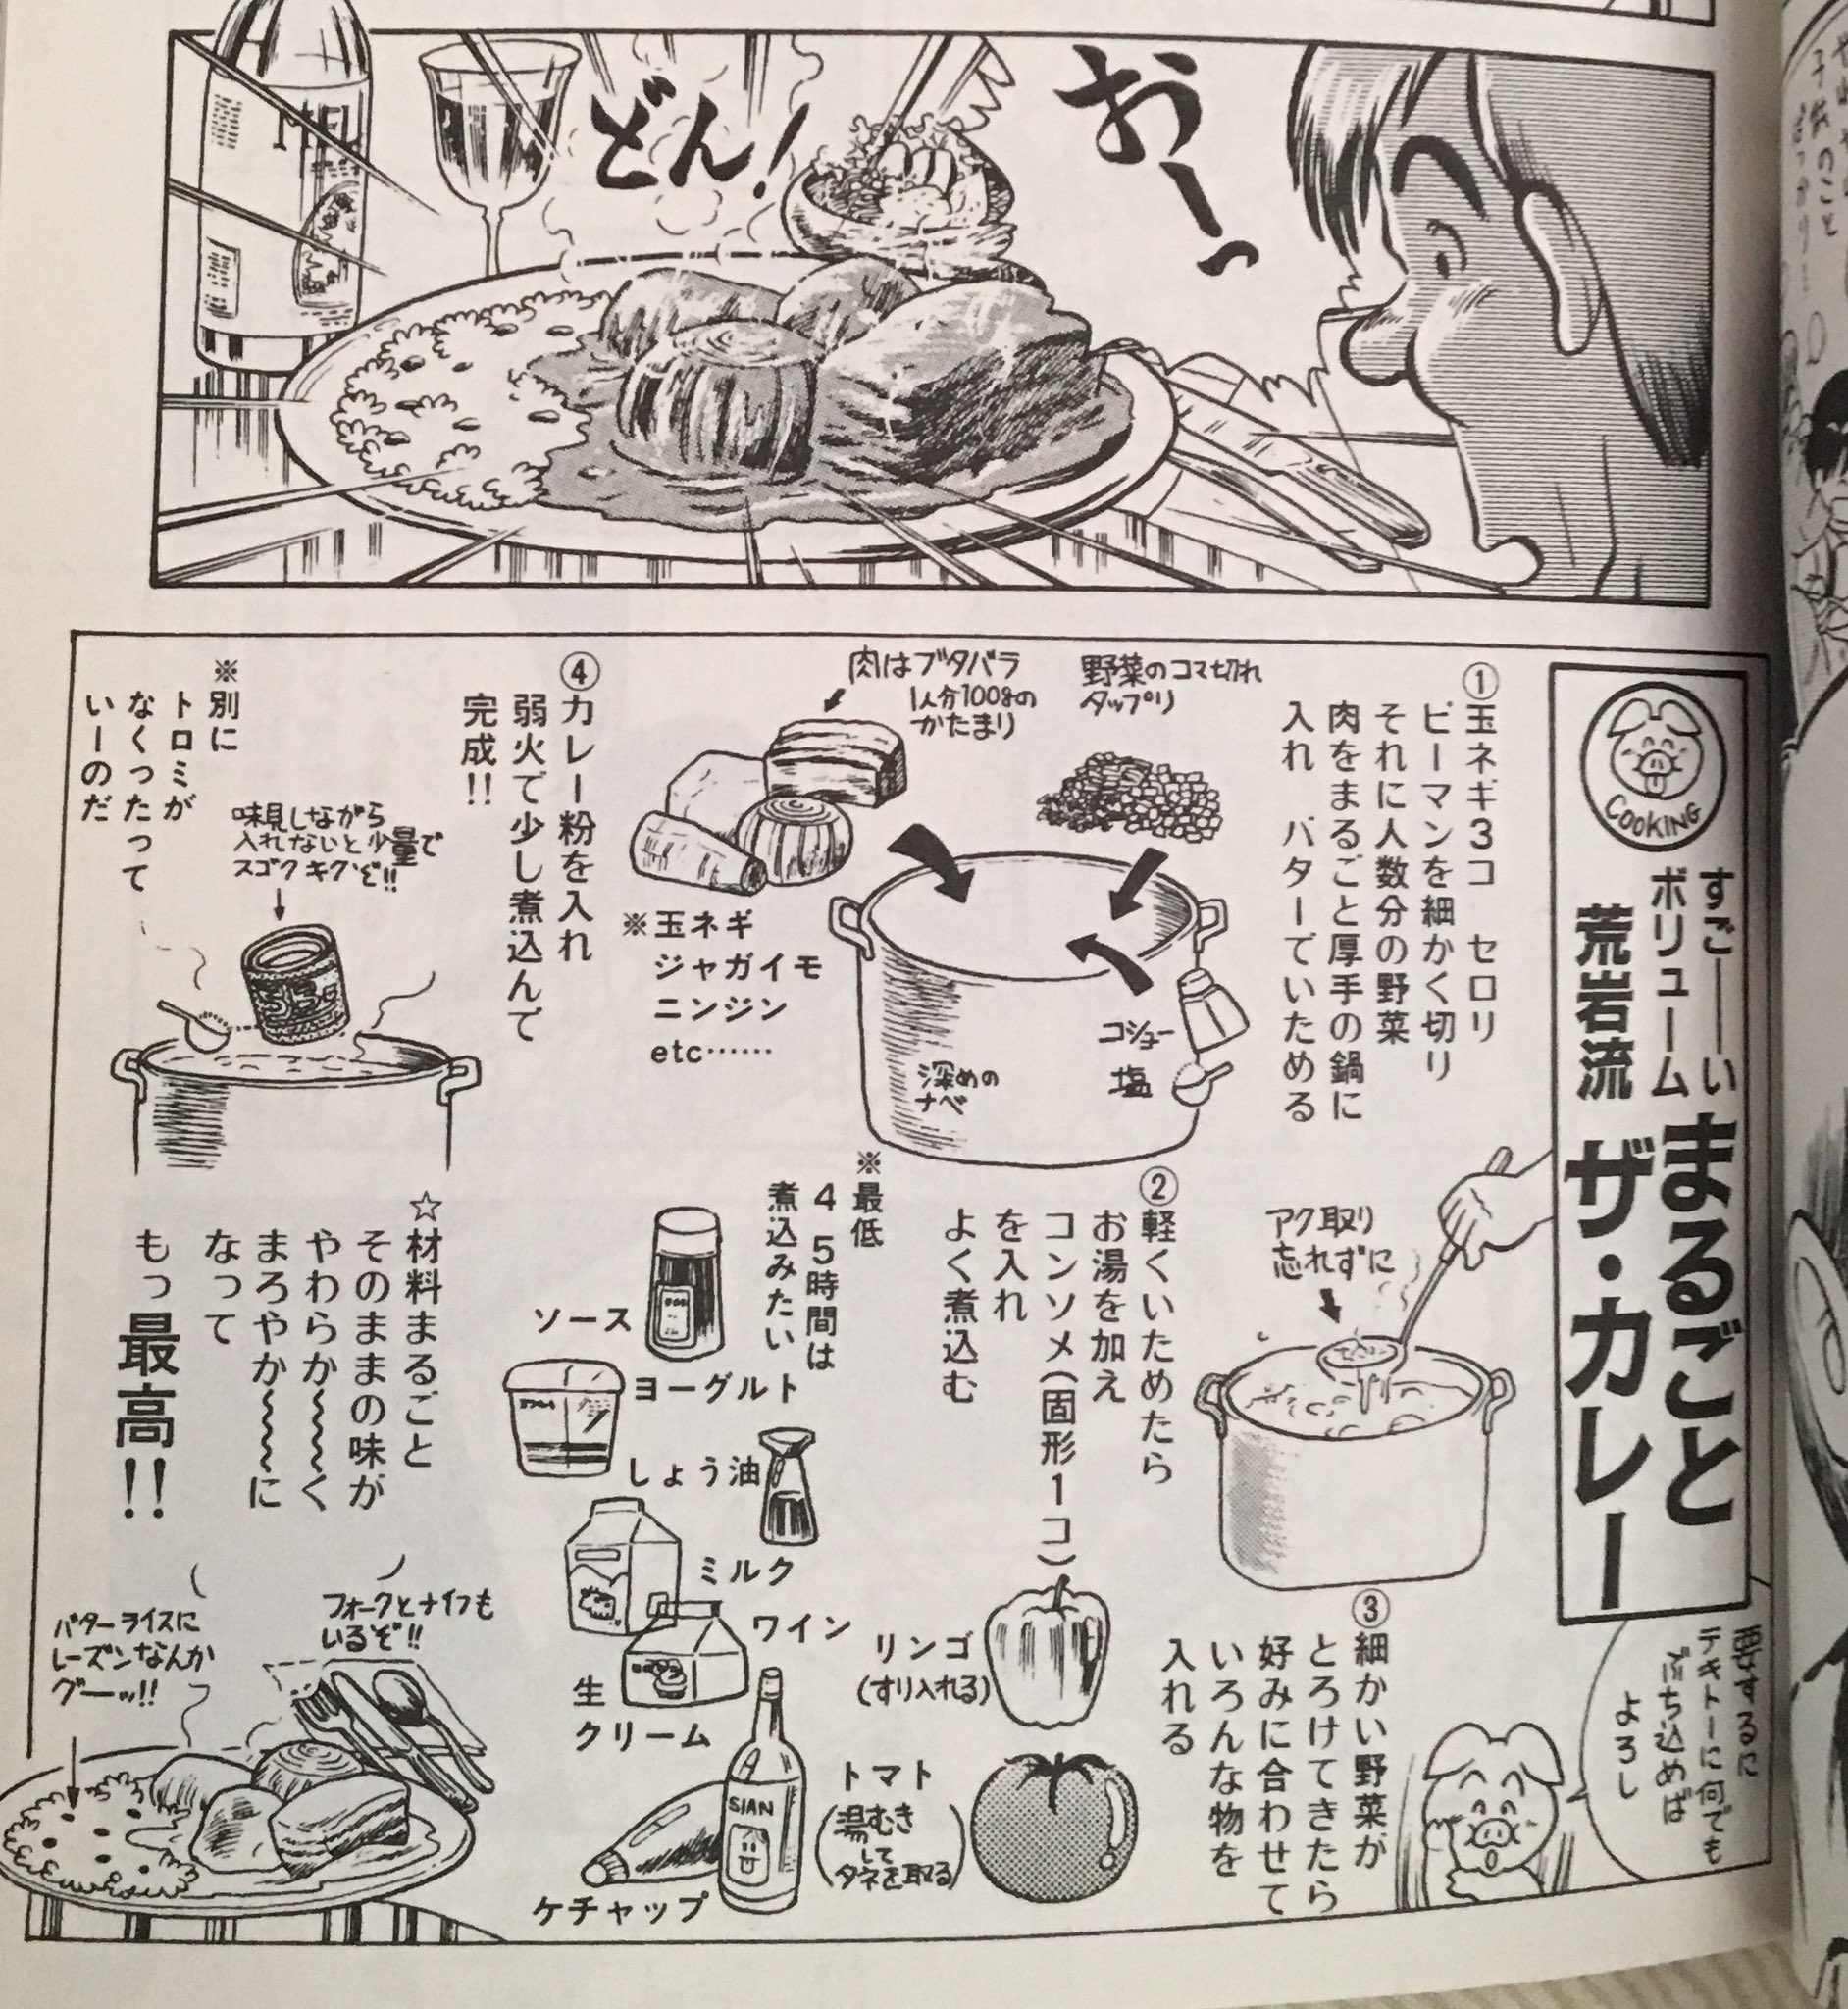 おーっ
どん!
MEL
COOKING
すご――い
ボリューム
荒岩流
まるごと
ザ・カレー
①玉ネギ3コ セロリ
ピーマンを細かく切り
それに人数分の野菜
肉をまるごと厚手の鍋に
入れ バターでいためる
野菜のコマ切れ
タップリ
肉はブタバラ
1人分100gの
かたまり
※玉ネギ
ジャガイモ
ニンジン
etc……
コショー
塩
深めの
ナベ
アク取り
忘れずに
②軽くいためたら
お湯を加え
コンソメ(固形1コ)
を入れ
よく煮込む
※最低
4 5時間は
煮込みたい
③細かい野菜が
とろけてきたら
好みに合わせて
いろんな物を
入れる
要するに
テキトーに何でも
ぶち込めば
よろし
リンゴ
(すり入れる)
トマト
(湯むき
して
タネを取る)
ソース
ヨーグルト
しょう油
ミルク
ワイン
生
クリーム
SIAN
ケチャップ
④カレー粉を入れ
弱火で少し煮込んで
完成!!
味見しながら
入れないと少量で
スゴクキクぞ!!
※別に
トロミが
なくったって
いーのだ
☆材料まるごと
そのままの味が
やわらか〜〜く
まろやか〜〜に
なって
もっ最高!!
フォークとナイフも
いるぞ!!
バターライスに
レーズンなんか
グーッ!!